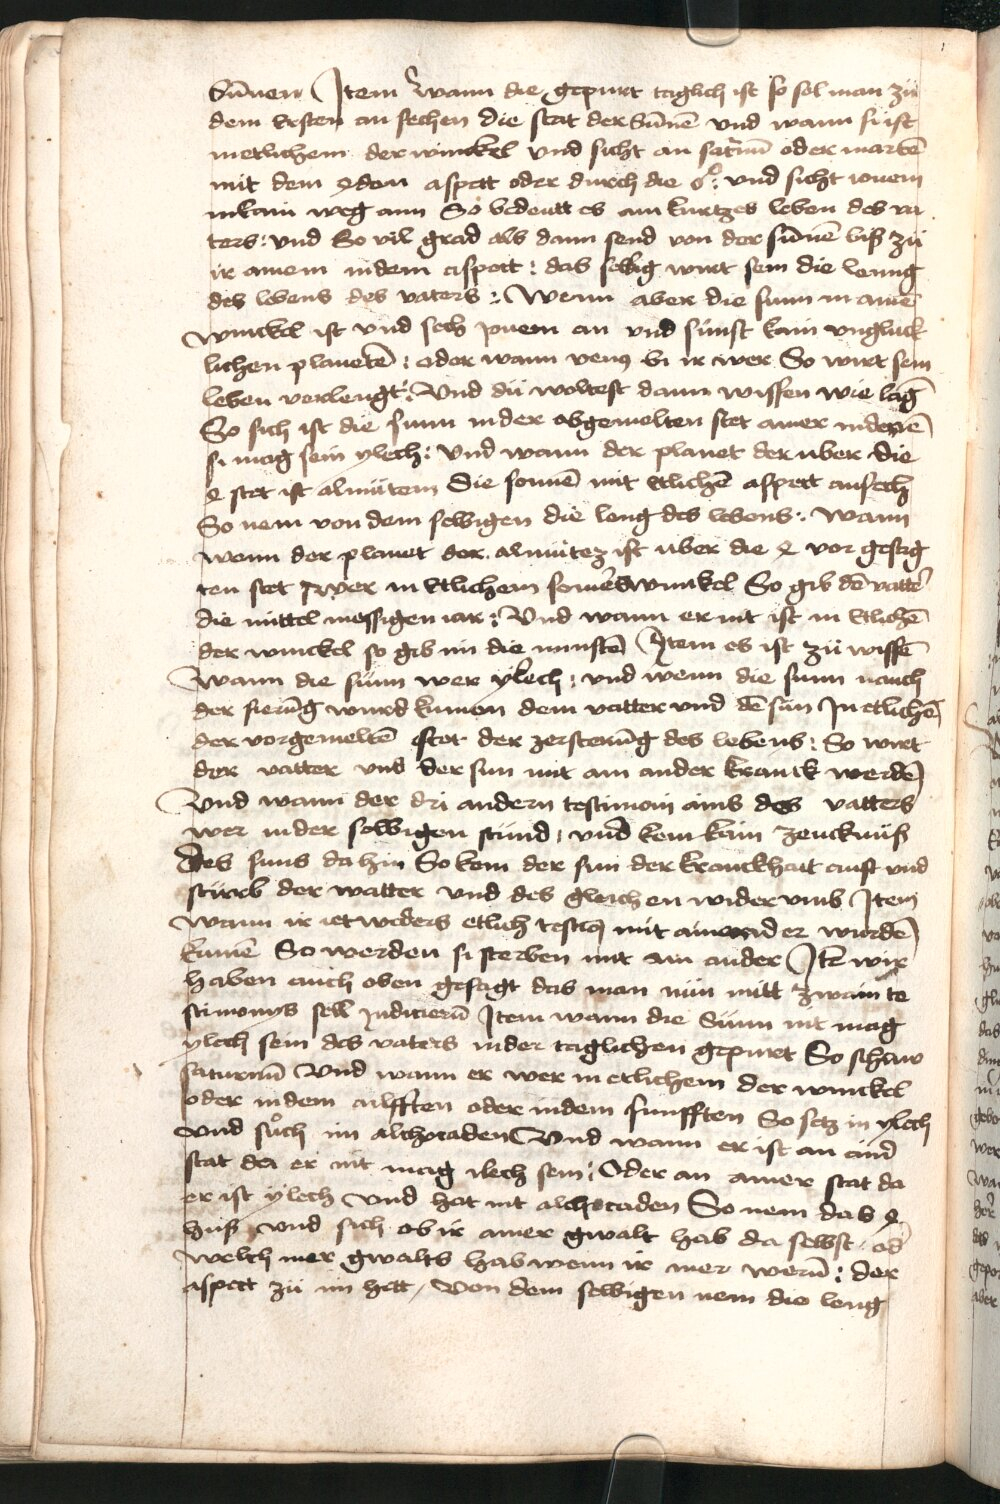 Sūnen Item wann die gepurt täglich ist so sol man zů
dem ersten an sechen die stat der Sūnē und wann si ist
in etlichem der winckel und sicht an saturnū oder martē
mit dem 4den aspect oder durch die und sicht iovem
in kain weg ann So bedeutt es ain kurtzes leben des va
ters: und So vil grad als dann send von der sūnē biß zů
ir ainem in dem aspect: das selbig wirt sein die leung
des lebens des vaters: Wenn aber die sunn in ainē
winckel ist und sech iouem an und sunst kain unglück
lichen planetē: oder wann venus bi ir wer So wirt sein
leben verlengt: Und du woltest dann wissen wie lāg
So sich ist die sunn in der obgemelten stet ainer in denē
si mag sein ylech: und wann der planet der uber die
4 stet ist almutem die sonnē mit etlichē aspect ansech
So nem von dem selbigen die leng des lebens: wann
wenn der planet der almutez ist uber die 4 vor gesag
ten stet wer in etlichem seinēs winckel So gib dē vattē
die mittel messigen iar: Und wann er nit ist in etlichē
der winckel so gib im die minstē Item es ist zů wissē
Wann die sunn wer ylech: und wenn die sunn nauch
der fierūg wurd kumen dem vatter und dē sun In etlichē
der vorgemeltē stet der zerstorūg des lebens: So wirt
der vatter und der sun mit ain ander kranck werdē
Und wann der dri andern testimoni ains des vatters
wer in der selbigen stund: und kem kain zeucknuß
des suns da hin So kem der sun der kranckhait auß und
stürb der vatter und des gleichen widerumb Item
wann ir ietweders etlich mit ainander wurdē
kumē So werden si sterben mit ain ander Itē wir
haben auch oben gesagt das man nun mitt zwain te
stimonys soll iudicierū Item wann die Sunn nit mag
ylech sein des vaters in der täglichen gepurt So schaw
saturnū Und wann er wer in etlichem der winckel
oder in dem ailfften oder in dem funfften So setz in ylech
und sůch im alchocaden Und wann er ist an aind
stat da er nit mag ilech sein: Oder an ainer stat da
er ist ylech und hat nit alchocaden So nem das 4
huß und sich ob ir ainer gwalt hab da selbst od
welch mer gwalts hab wenn ir mer werū: der
aspect zů im hett, von dem selbigen nem die leng